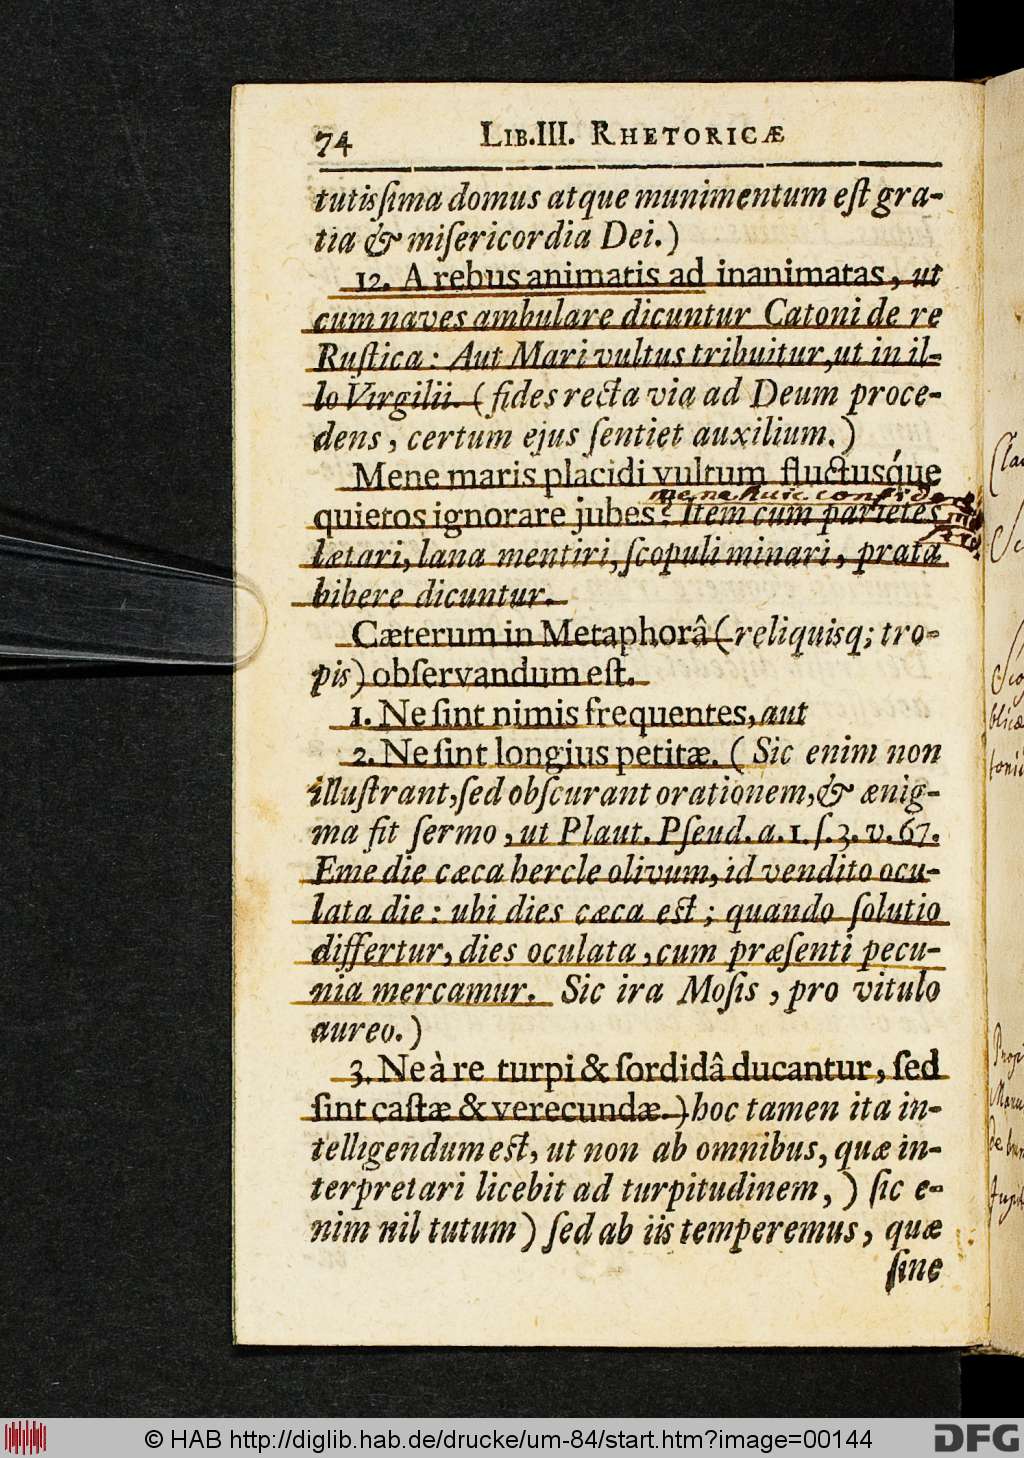 74 LIB.III. RHETORICÆ
tutisſima domus atque munimentum eſt gra-
tia & miſericordia Dei.)
12. A rebus animatis ad inanimatas, ut
cum naves ambulare dicuntur Catoni de re
Ruſtica: Aut Mari vultus tribuitur, ut in il-
lo Virgilii. (fides recta via ad Deum proce-
dens, certum ejus ſentiet auxilium.)
Mene maris placidi vultum fluctusq́ue
mene huic confidere
quietos ignorare jubes? Item cum parietes
lætari, lana mentiri, ſcopuli minari, prata
bibere dicuntur.
Cæterum in Metaphorâ (reliquisq; tro-
pis) obſervandum eſt.
1. Ne ſint nimis frequentes, aut
2. Ne ſint longius petitæ. (Sic enim non
illuſtrant, ſed obſcurant orationem, & ænig-
ma fit ſermo, ut Plaut. Pſeud. a. 1. ſ. 3. v. 67.
Eme die cæca hercle olivum, id vendito ocu-
lata die: ubi dies cæca est; quando ſolutio
differtur, dies oculata, cum præſenti pecu-
nia mercamur. Sic ira Moſis, pro vitulo
aureo.)
3. Ne à re turpi & ſordidâ ducantur, ſed
ſint caſtæ & verecundæ.) hoc tamen ita in-
telligendum est, ut non ab omnibus, quæ in-
terpretari licebit ad turpitudinem, ) ſic e-
nim nil tutum) ſed ab iis temperemus, quæ
ſine
© HAB http://diglib.hab.de/drucke/um-84/start.htm?image=00144
DFG